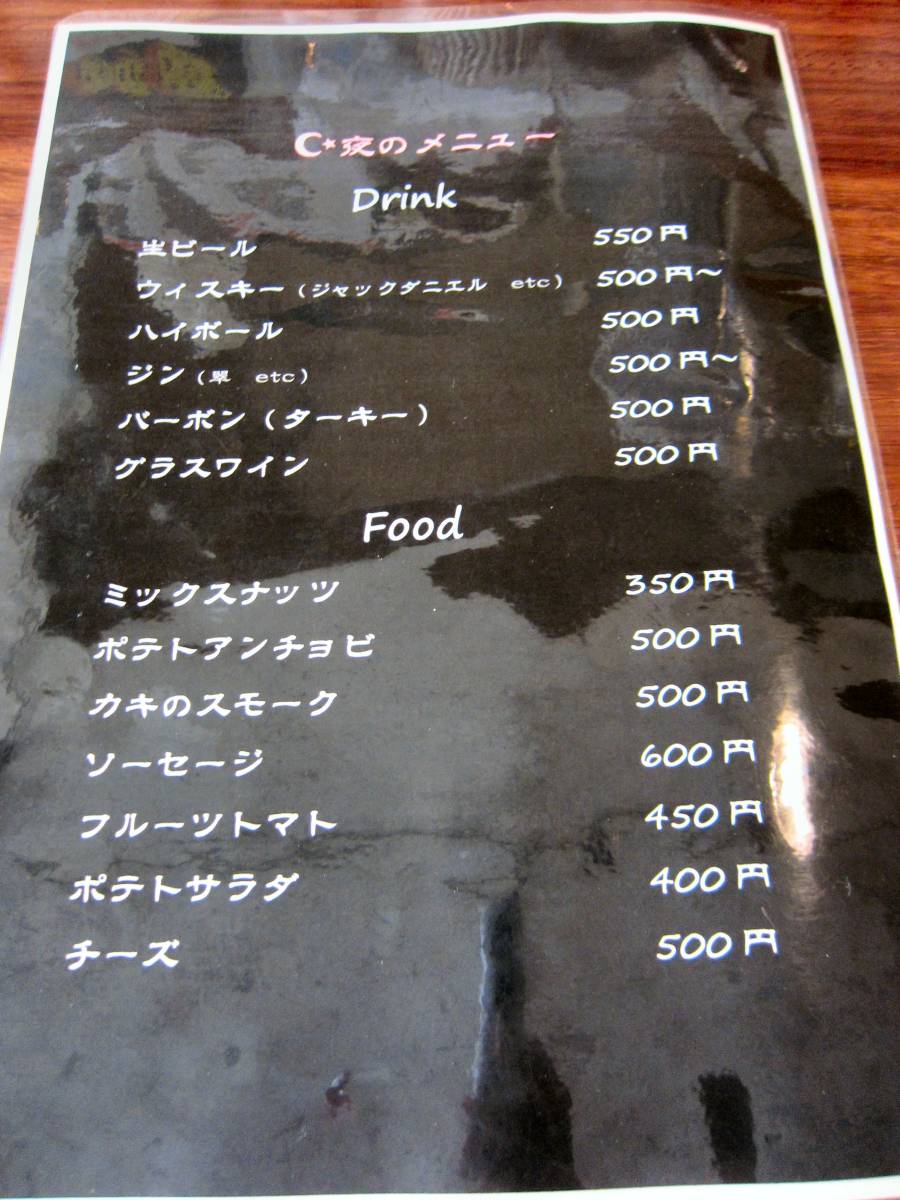 ☪夜のメニュー
Drink
生ビール 550円
ウィスキー(ジャックダニエル etc) 500円〜
ハイボール 500円
ジン(翠 etc) 500円〜
バーボン(ターキー) 500円
グラスワイン 500円
Food
ミックスナッツ 350円
ポテトアンチョビ 500円
カキのスモーク 500円
ソーセージ 600円
フルーツトマト 450円
ポテトサラダ 400円
チーズ 500円